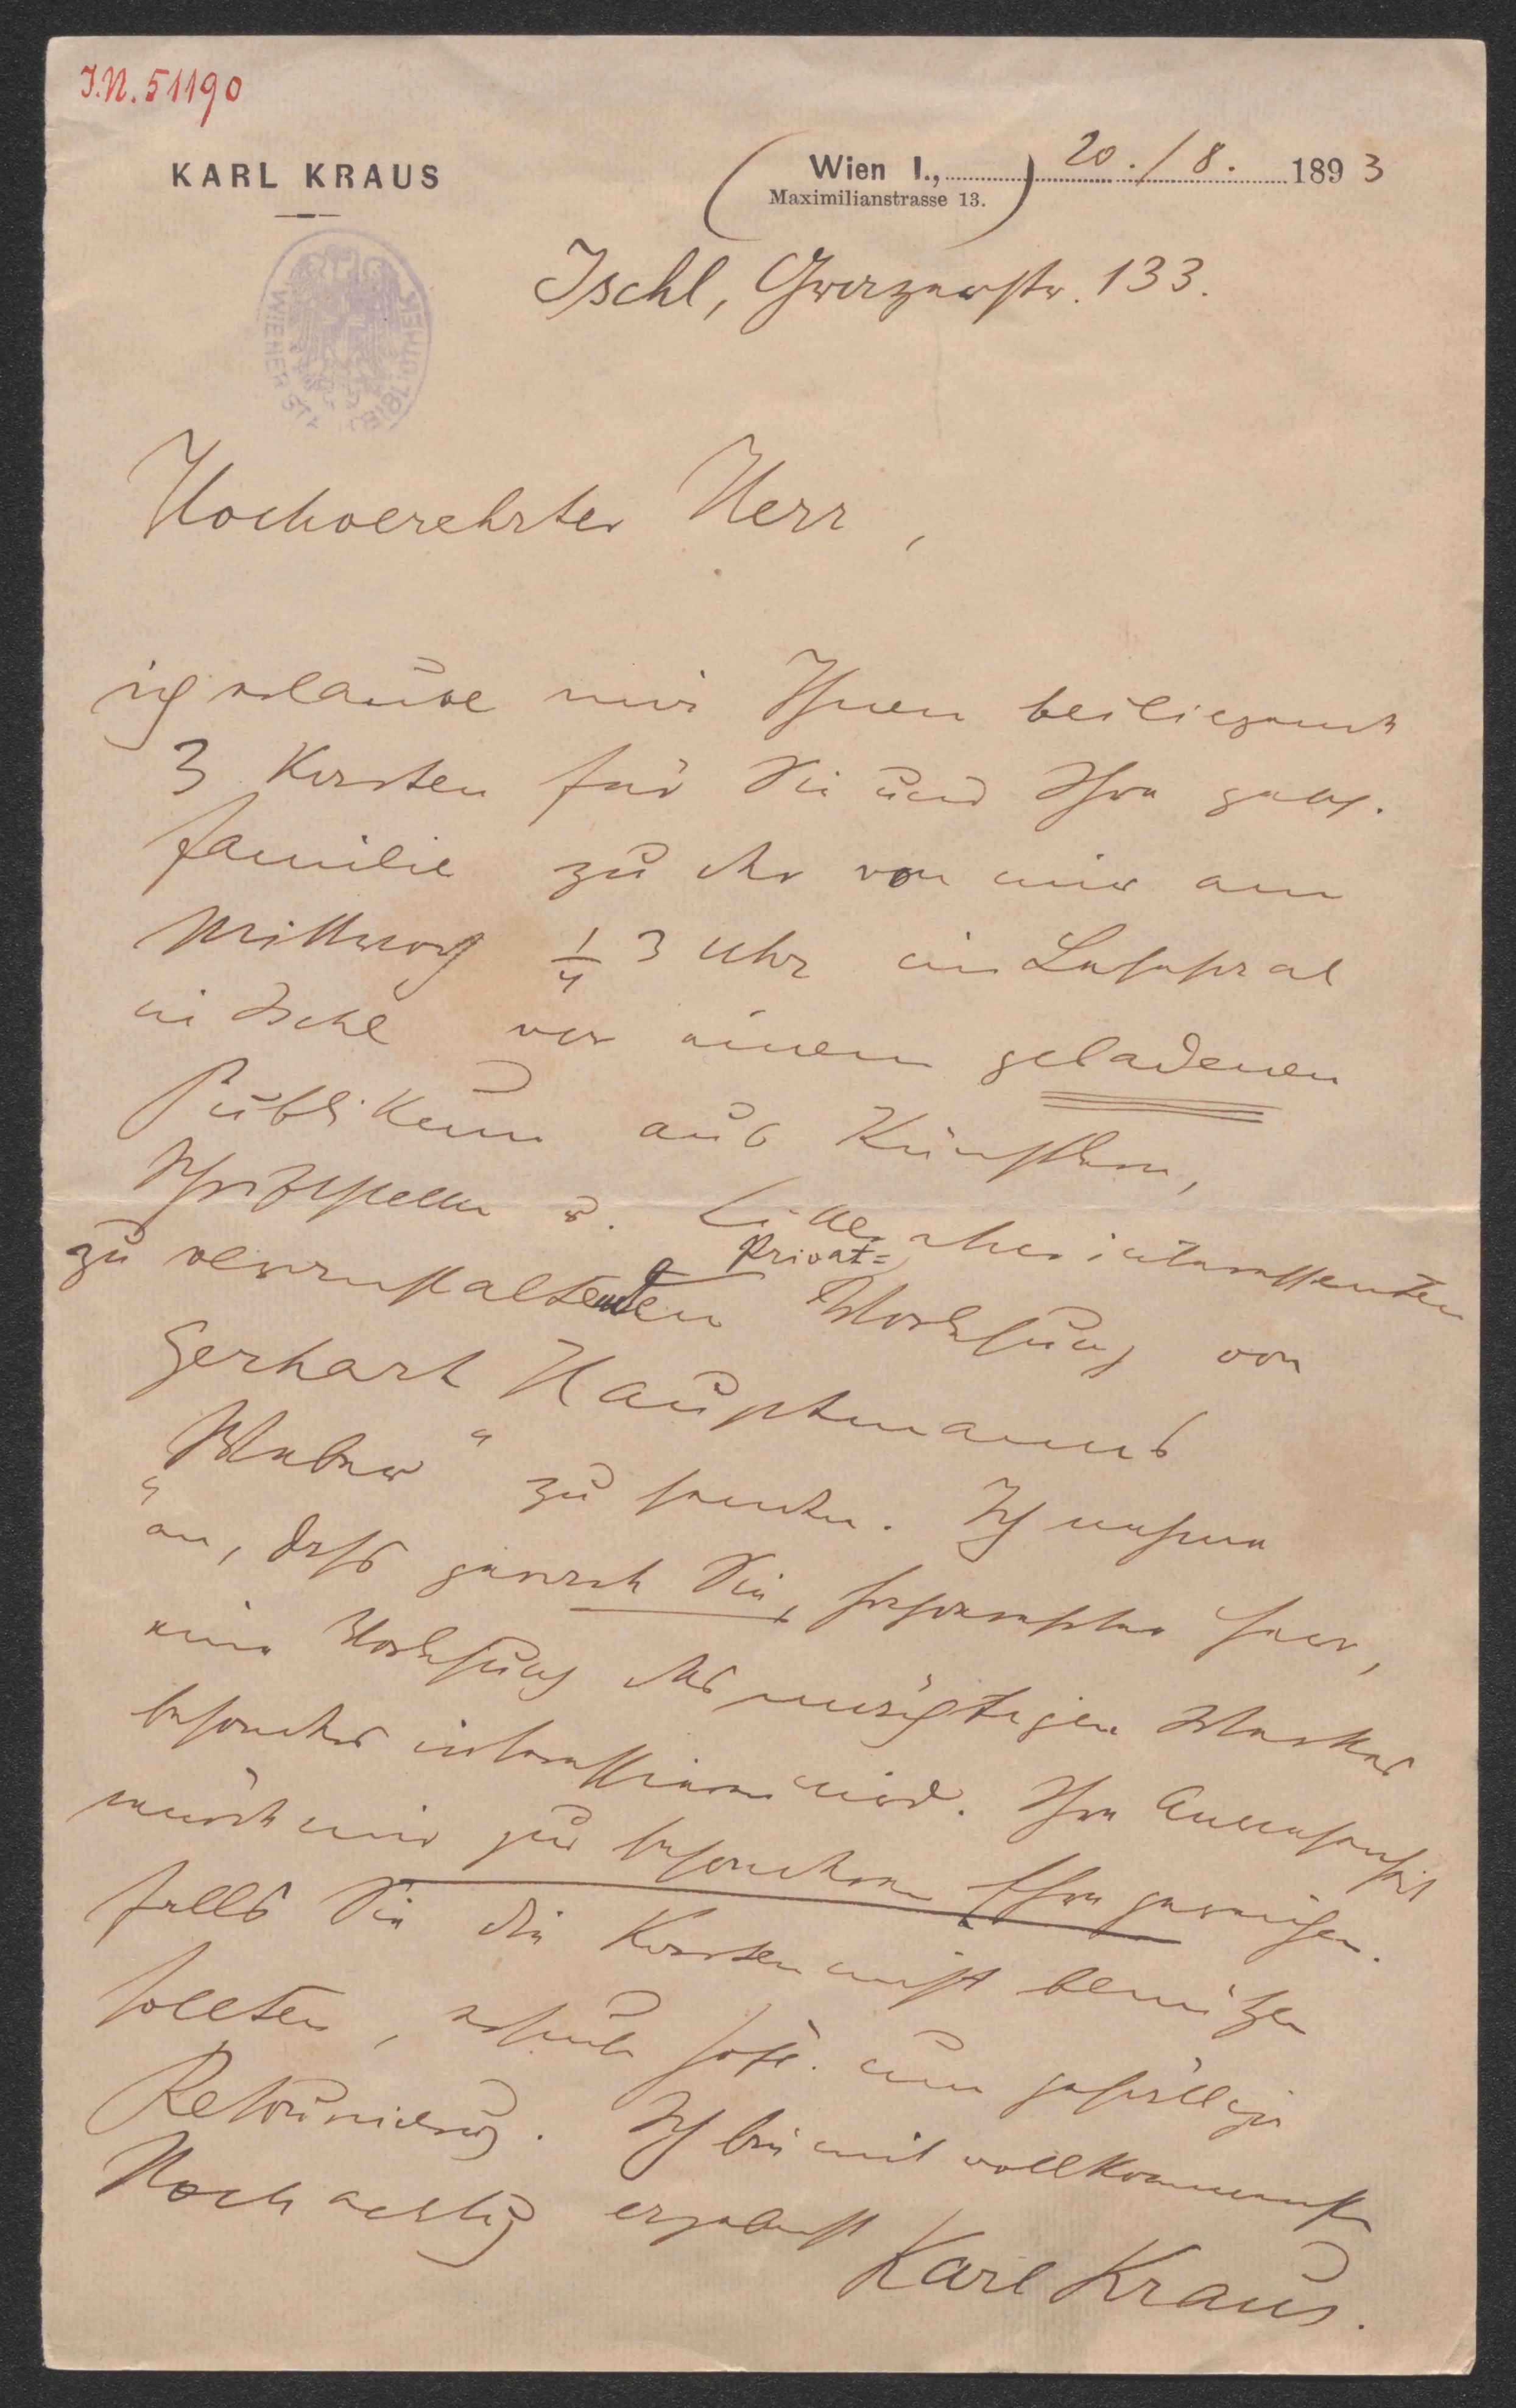 J.N. 51190
KARL KRAUS
(Wien I., ) 20. / 8. 1893
Maximilianstrasse 13.
WIENER STADTBIBLIOTHEK
Ischl, Grazerstr. 133.
Hochverehrter Herr,
ich erlaube mir Ihnen beiliegend
3 Karten für Sie und Ihre gesch.
Familie zu der von mir am
Mittwoch ¼ 3 Uhr im
in Ischl vor einem geladenen
Publikum aus Künstlern,
Schriftstellern u. Litteraturinteressenten
Privat=
zu veranstaltenden Vorlesung von
Gerhart Hauptmanns
„Weber“ zu senden. Ich nehme
an, dass gerade Sie, hochverehrter Herr,
eine Vorlesung des mächtigen Werkes
besonders interessieren wird. Ihre Anwesenheit
würde mir zur besonderen Ehre gereichen.
Falls Sie die Karten nicht benützen
sollten, ersuche höfl. um gefällige
Retournierung. Ich bin mit vollkommenster
Hochachtung ergebenst
Karl Kraus.